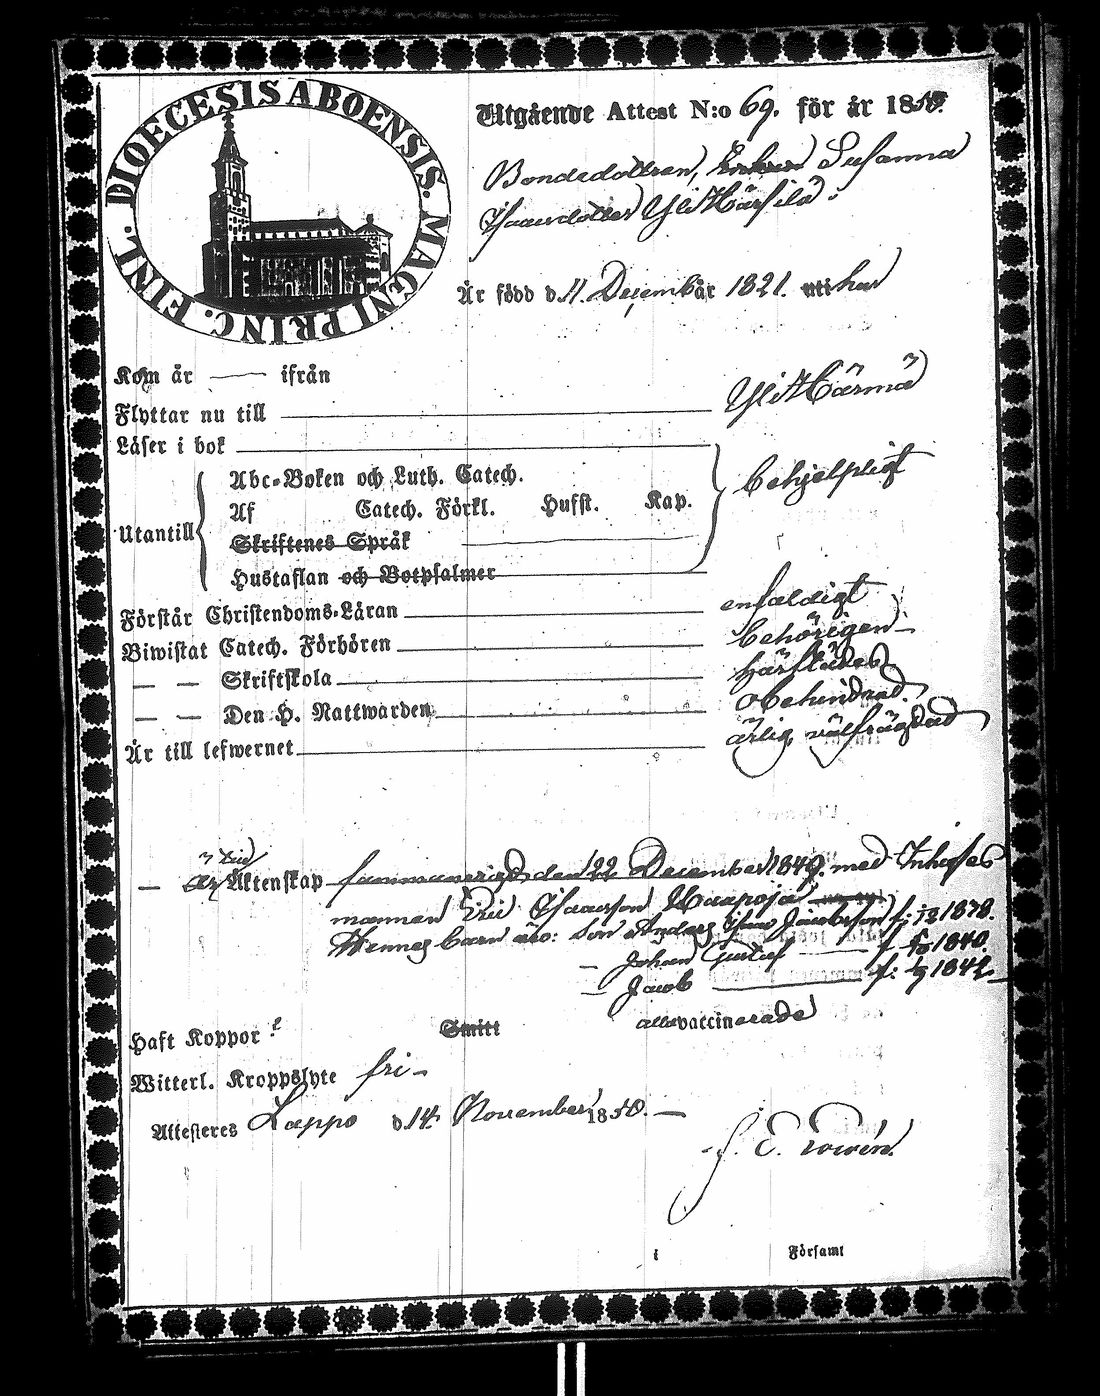 DIOECESIS ABOENSIS. MAGNI PRINC. FINL.
Utgående Attest N:o 69. för år 1850.
Bondedottren, Susanna
Isaacsdotter YliHärsilä.
Är född d. 11. Decemb år 1821. uti här
Kom år — ifrån
Flyttar nu till YliHärmä
Läser i bok
Utantill
Abc-Boken och Luth. Catech.
Af Catech. Förkl. Husst. Kap. behjelpligt
Skriftenes Språk
Hustaflan och Botpsalmer
Förstår Christendoms-Läran enfaldigt
Biwistat Catech. Förhören behörigen
— — Skriftskola härstädes
— — Den H. Nattwarden obehindrad.
Är till lefwernet ärlig, välfrägdad
— Äktenskap den 22 December 1849. med Inhyses
mannen Isaacsson Haapoja
Hennes barn äro: Son Anders Jacobsson f: 1878.
— Johan Gustaf — f 1840.
— Jacob — f:
Haft Koppor ? Smitt alla vaccinerade
Witterl. Kroppslyte fri —
Attesteres Lappo d. 14. November 1850. —
i Församl